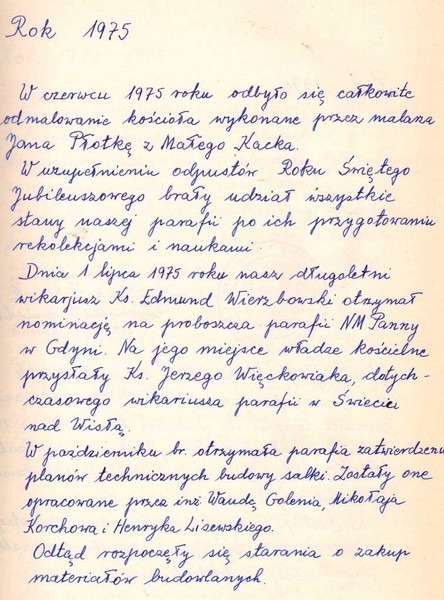 Rok 1975
W czerwcu 1975 roku odbyło się całkowite
odmalowanie kościoła wykonane przez malarza
Jana Płotkę z Małego Kacka.
W uzupełnieniu odpustów Roku Świętego
Jubileuszowego brały udział wszystkie
stany naszej parafii po ich przygotowaniu
rekolekcjami i naukami.
Dnia 1 lipca 1975 roku nasz długoletni
wikarjusz Ks. Edmund Wierzbowski otrzymał
nominację na proboszcza parafii NM Panny
w Gdyni. Na jego miejsce władze kościelne
przysłały Ks. Jerzego Więckowiaka, dotych-
czasowego wikariusza parafii w Świeciu
nad Wisłą.
W październiku br. otrzymała parafia zatwierdzenie
planów technicznych budowy salki. Zostały one
opracowane przez inż Wandę Golenia, Mikołaja
Korchowa i Henryka Lisewskiego.
Odtąd rozpoczęły się starania o zakup
materiałów budowlanych.